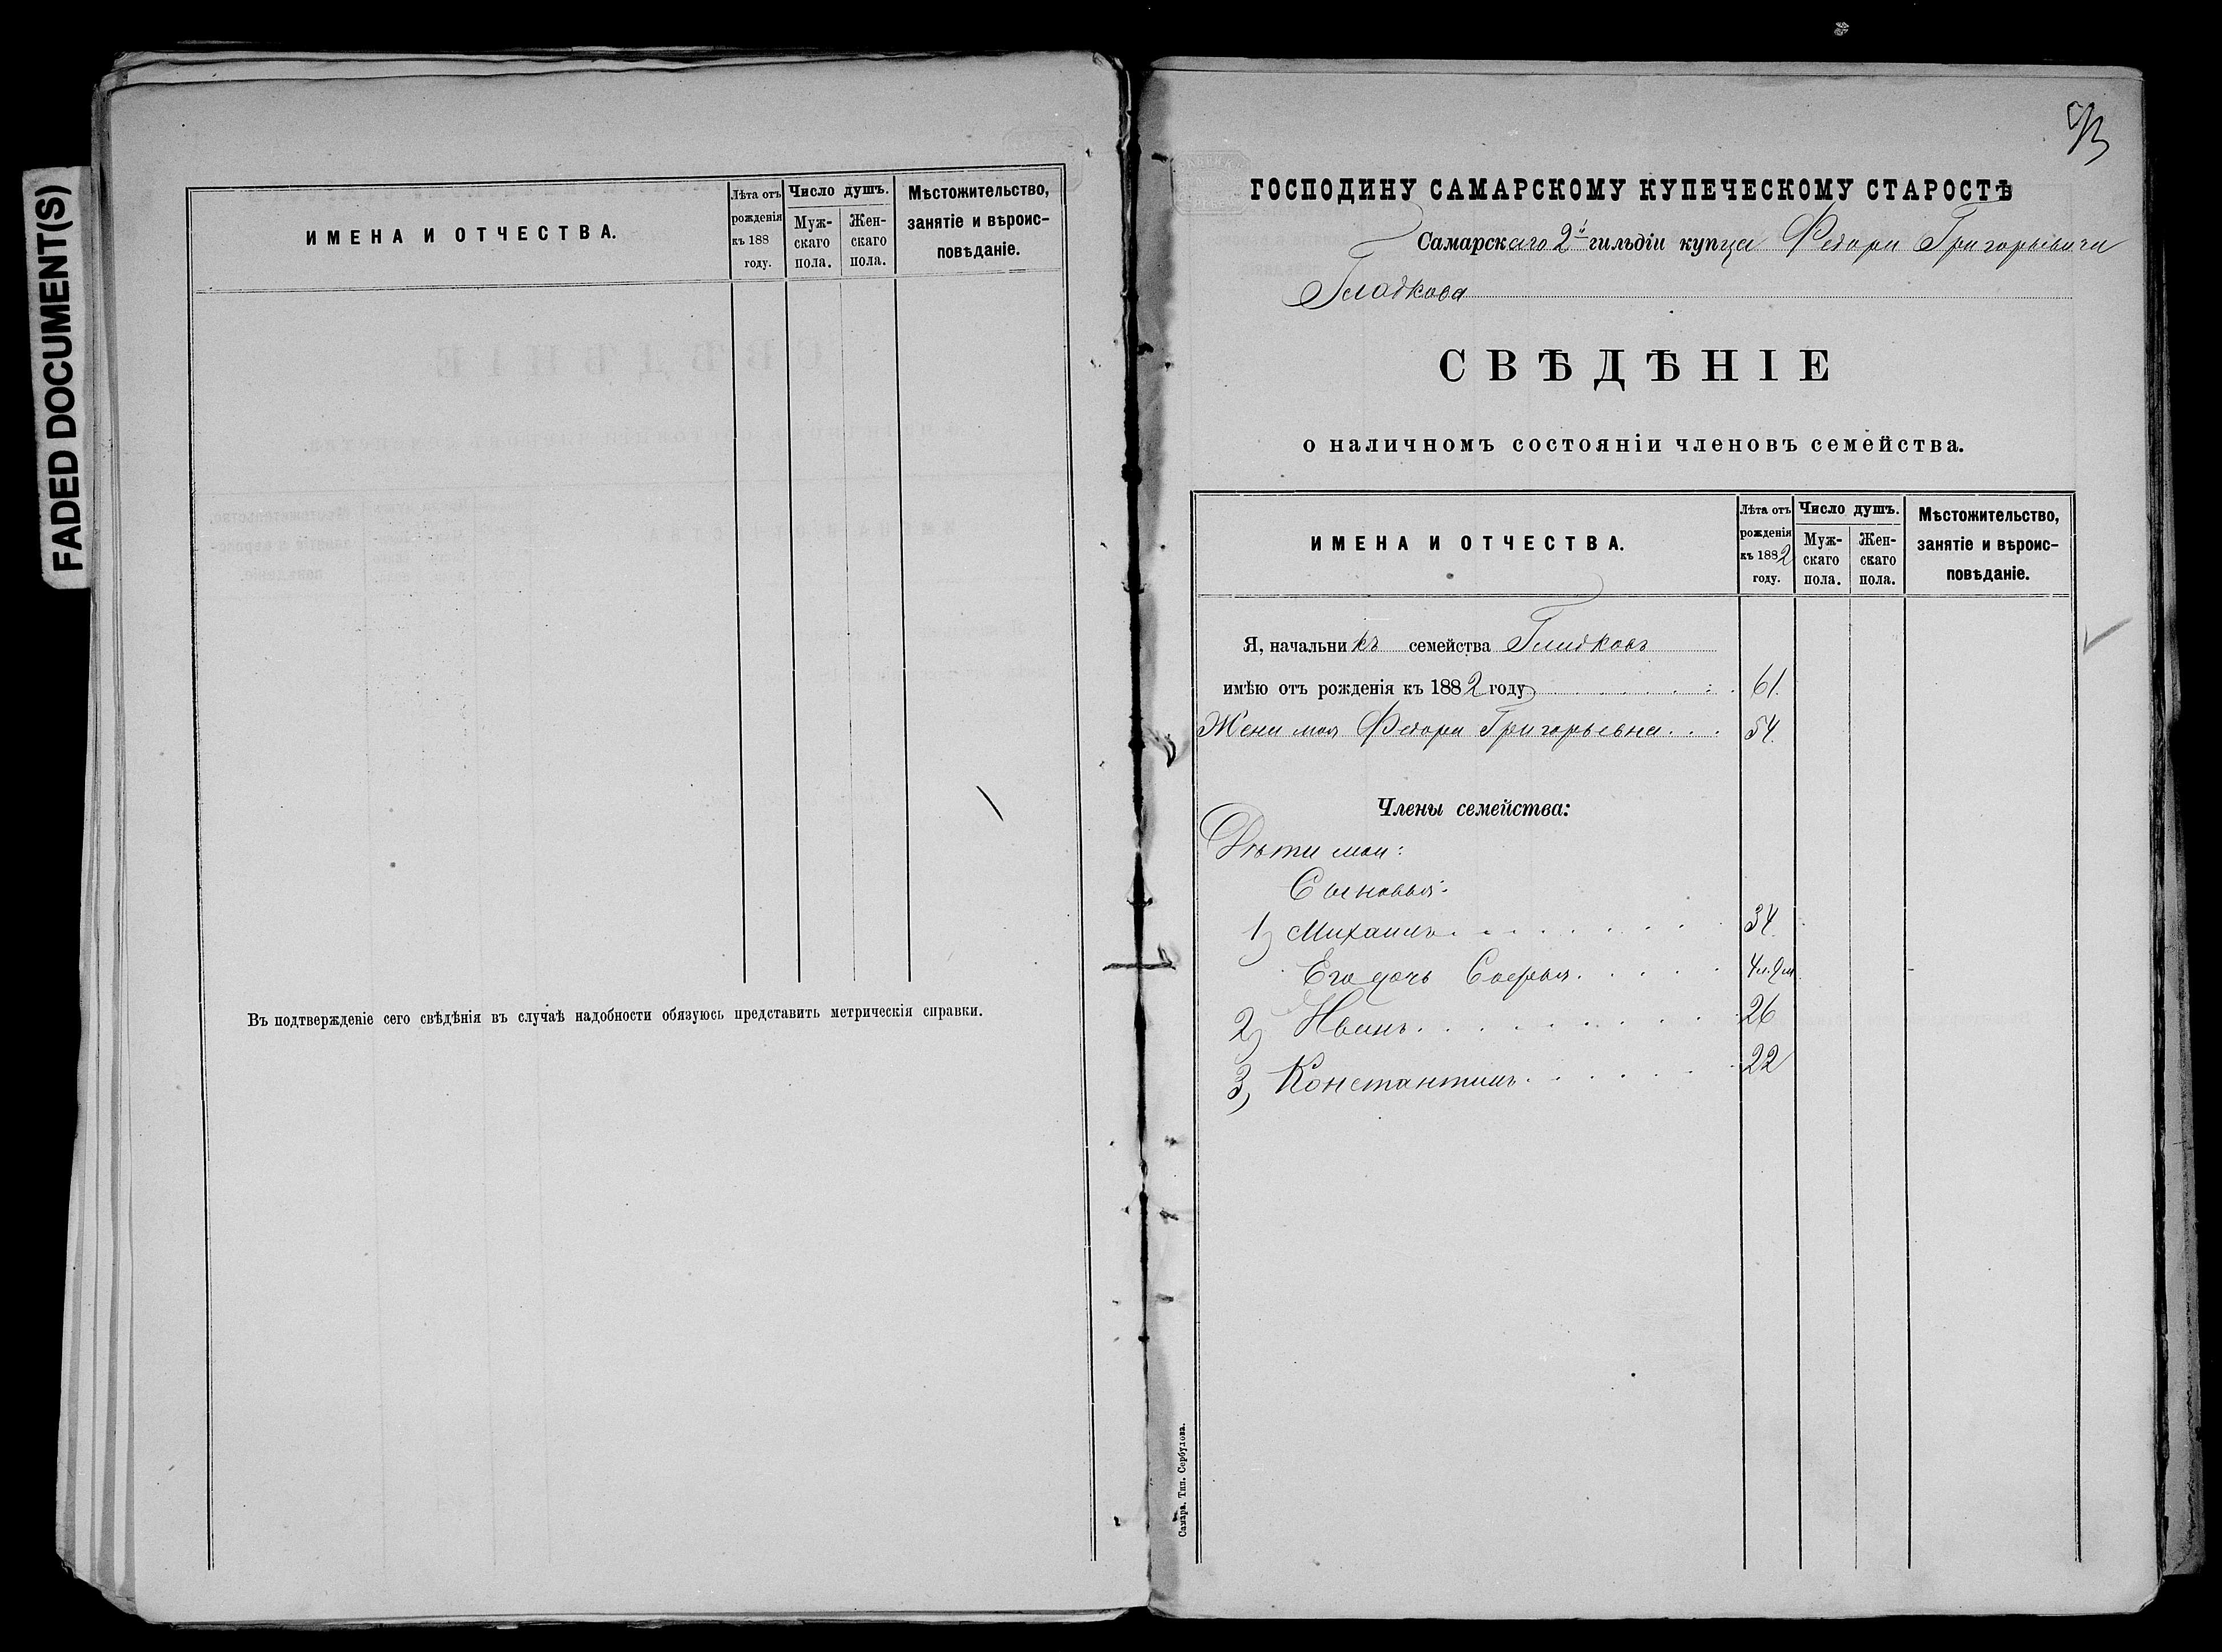 FADED DOCUMENT(S)
ИМЕНА И ОТЧЕСТВА.
Лѣта отъ рожденія къ 188 году.
Число душъ.
Мужскаго пола.
Женскаго пола.
Мѣстожительство, занятіе и вѣроисповѣданіе.
Въ подтвержденіе сего свѣдѣнія въ случаѣ надобности обязуюсь представить метрическія справки.
ГОСПОДИНУ САМАРСКОМУ КУПЕЧЕСКОМУ СТАРОСТѢ
Самарскаго 2й гильдіи купца Федора Григорьевича
Гладкова
СВѢДѢНІЕ
о наличномъ состояніи членовъ семейства.
ИМЕНА И ОТЧЕСТВА.
Лѣта отъ рожденія къ 1882 году.
Число душъ.
Мужскаго пола.
Женскаго пола.
Мѣстожительство, занятіе и вѣроисповѣданіе.
Я, начальникъ семейства Гладковъ
имѣю отъ рожденія къ 1882 году 61.
Жена моя Федора Григорьевна . . . 54.
Члены семейства:
Дѣти мои:
Сыновья:
1) Михаилъ . . . . . . . 34.
Его дочь Софья . . . . . 4 л. 9 м.
2) Иванъ . . . . . . . . . 26
3) Константинъ . . . . . . . 22
Самара, Тип. Сербулова.